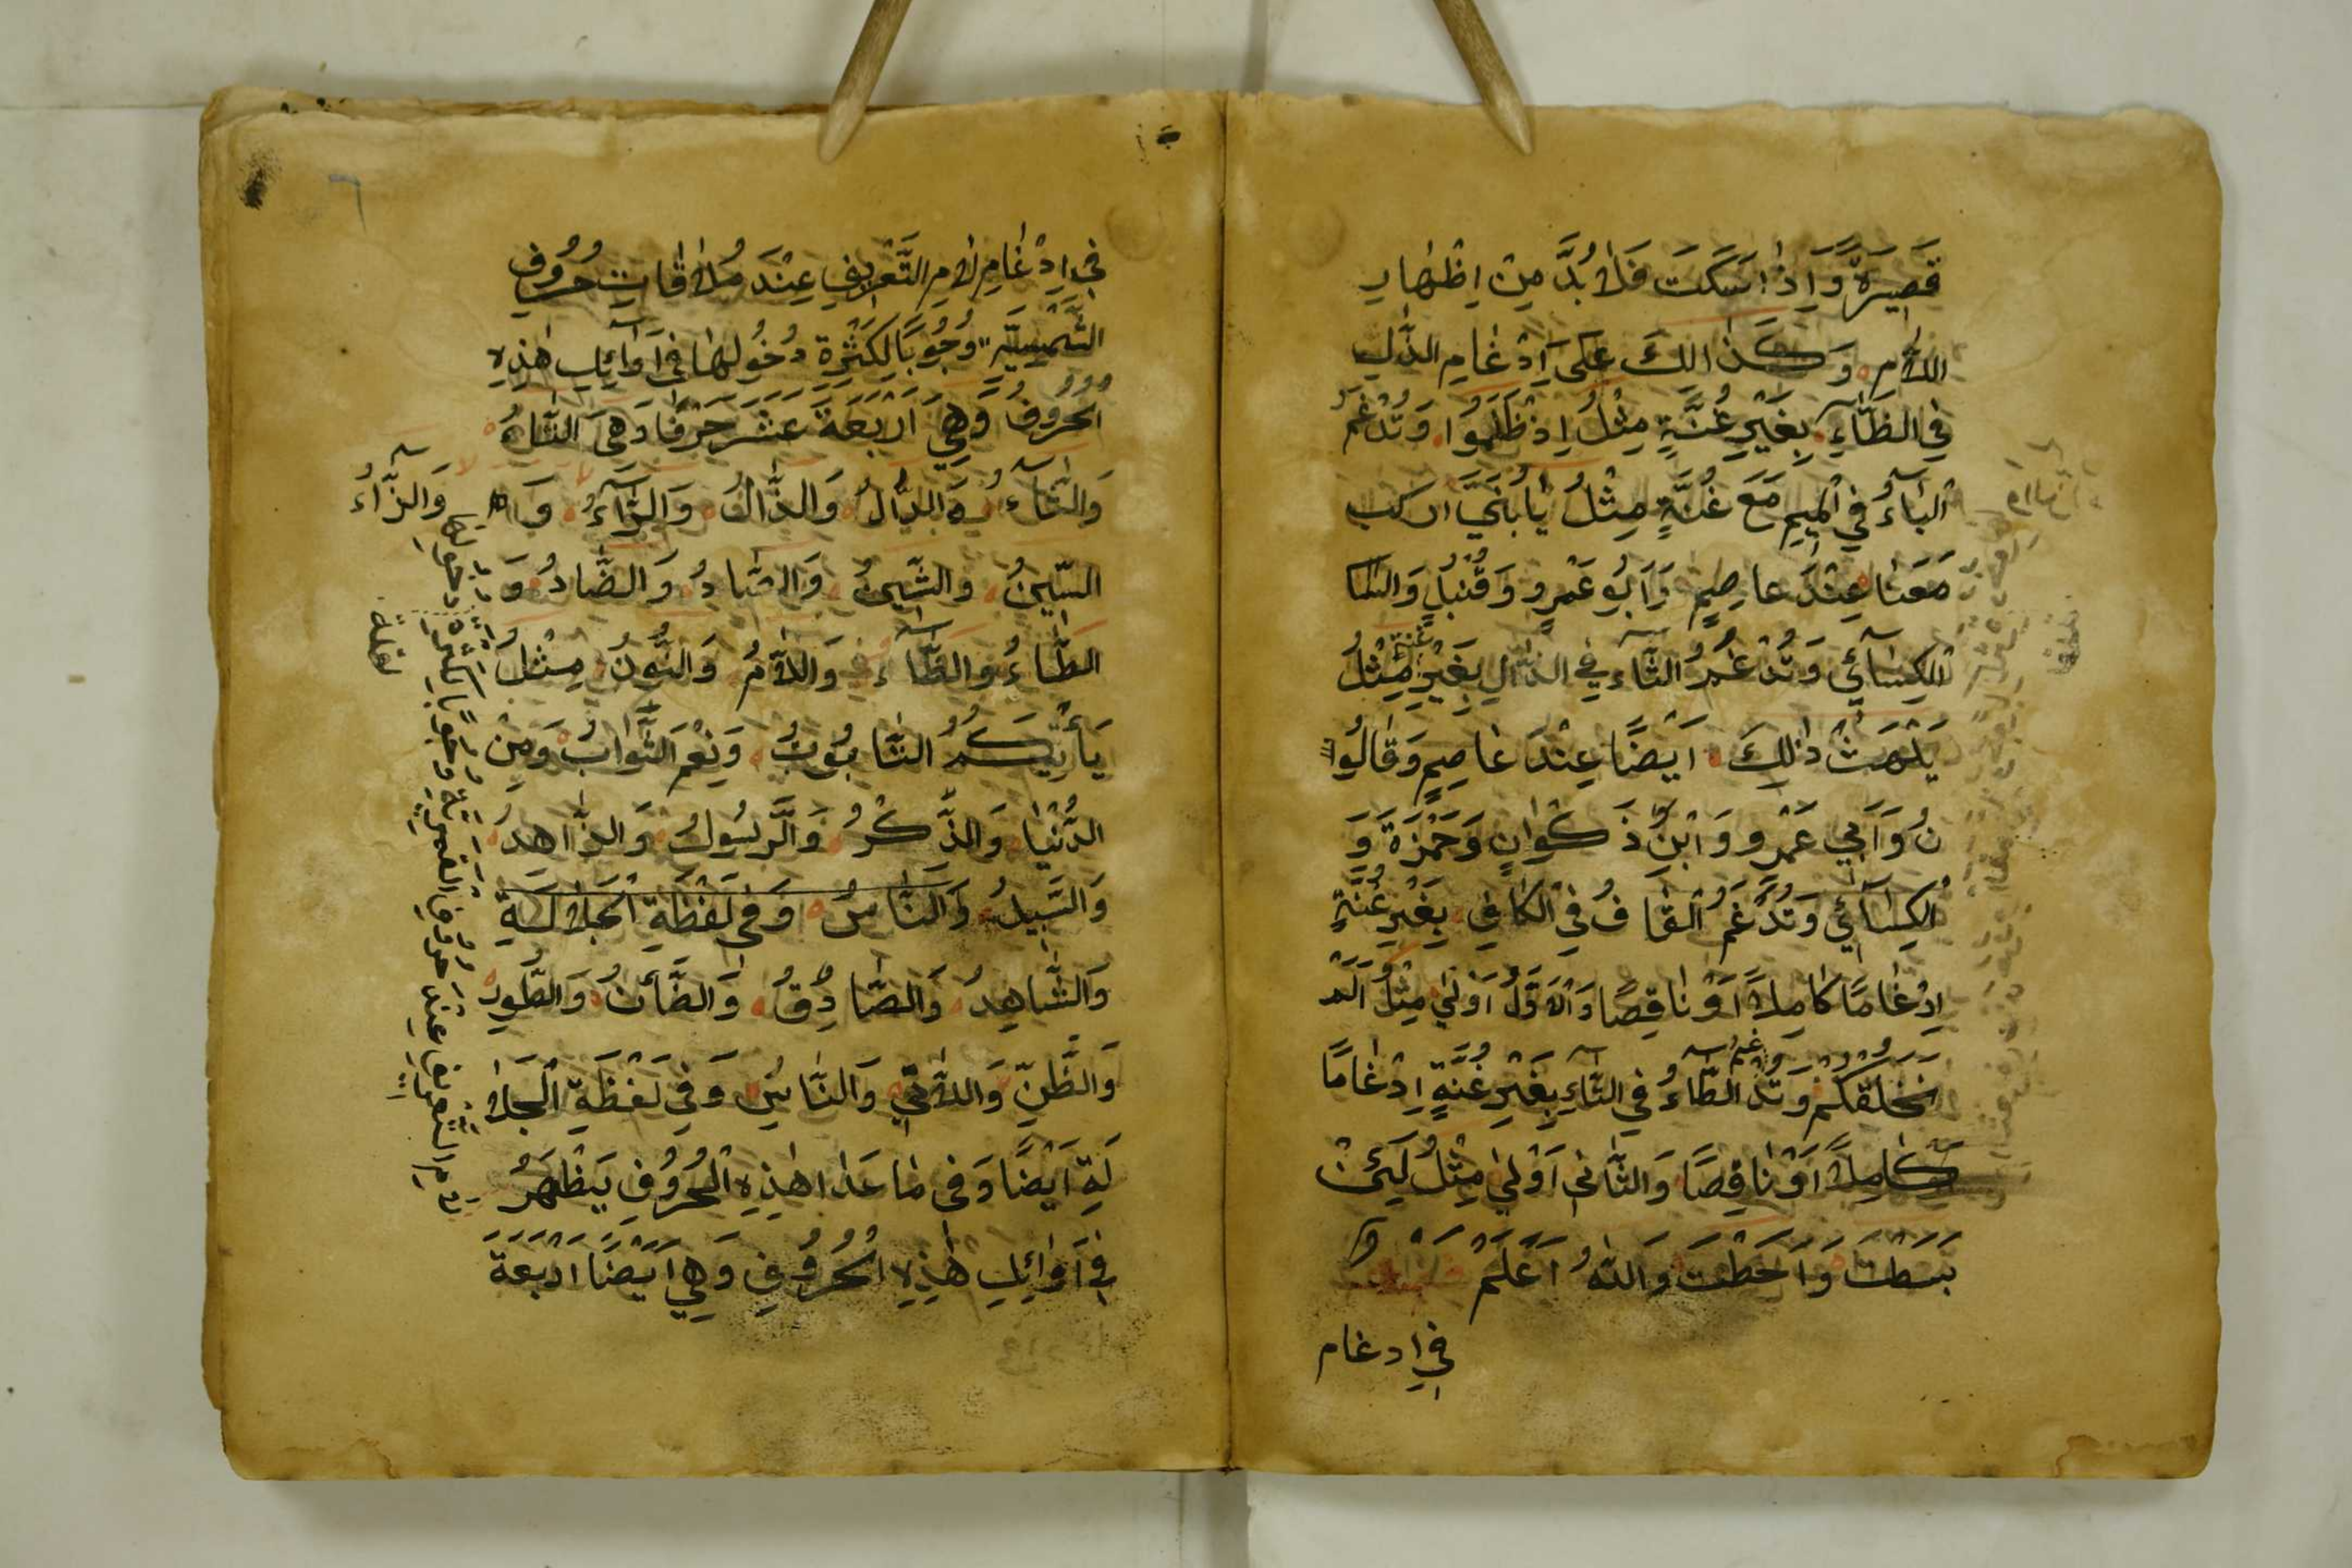 قَصِيرَةٌ وَاِذَا سَكَتَ فَلَا بُدَّ مِنْ اِظْهَارِ
اللَّامِ وَكَذَالِكَ عَلَى اِدْغَامِ الذَّالِ
فِي الظَّاءِ بِغَيْرِ غُنَّةٍ مِثْلُ اِذْ ظَلَمُوا وَتُدْغَمُ
الْبَاءُ فِي الْمِيمِ مَعَ غُنَّةٍ مِثْلُ يَا بُنَيَّ ارْكَب
مَعَنَا عِنْدَ عَاصِمٍ وَاَبُو عَمْرٍو وَقُنْبُلٍ وَالكسا
الْكِسَائِي وَتُدْغَمُ الثَّاءُ فِي الذَّالِ بِغَيْرِ غنة مِثْلُ
يَلْهَثْ ذٰلِكَ اَيْضًا عِنْدَ عَاصِمٍ وَقَالُوا
نُ وَاَبِي عَمْرٍو وَابْنِ ذَكْوَانٍ وَحَمْزَةَ وَ
الْكِسَائِي وَتُدْغَمُ الْقَافُ فِي الْكَافِ بِغَيْرِ غُنَّةٍ
اِدْغَامًا كَامِلًا اَوْ نَاقِصًا وَالْاَوَّلُ اَوْلٰى مِثْلُ اَلَمْ
نَخْلُقْكُمْ وَتُدْغَمُ الطَّاءُ فِي التَّاءِ بِغَيْرِ غُنَّةٍ اِدْغَامًا
كَامِلًا اَوْ نَاقِصًا وَالثَّانِي اَوْلٰى مِثْلُ لَئِنْ
بَسَطْتَ وَاَحَطْتُ وَاللهُ اَعْلَمُ
فِي ادغام
٦
فِي اِدْغَامِ لَامِ التَّعْرِيفِ عِنْدَ مُلَاقَاتِ حُرُوفِ
الشَّمْسِيَّةِ وُجُوبًا لِكَثْرَةِ دُخُولِهَا فِي اَوَائِلِ هٰذِهِ
الْحُرُوفُ وَهِيَ اَرْبَعَةَ عَشَرَ حَرْفًا وَهِيَ التَّاءُ
وَالثَّاءُ وَالدَّالُ وَالذَّالُ وَالرَّاءُ وَالزَّاءُ
السِّينُ وَالشِّينُ وَالصَّادُ وَالضَّادُ وَ
الطَّاءُ وَالظَّاءُ وَاللَّامُ وَالنُّونُ مِثْلُ
يَأْتِيَكُمُ التَّابُوتُ وَنِعْمَ الثَّوَابُ وَمِنَ
الدُّنْيَا وَالذِّكْرُ وَالرَّسُولُ وَالزَّاهِدُ
وَالسَّبِيلُ وَالنَّاسُ وَفِي لَفْظَةِ الْجَلَالَةِ
وَالشَّاهِدُ وَالصَّادِقُ وَالضَّأْنُ وَالطُّورِ
وَالظَّنِّ وَاللَّاتِي وَالنَّاسِ وَفِي لَفْظَةِ الْجَلَا
لَةِ اَيْضًا وَفِي مَا عَدَا هٰذِهِ الْحُرُوفِ يَظْهَرُ
فِي اَوَائِلِ هٰذِهِ الْحُرُوفِ وَهِيَ اَيْضًا اَرْبَعَةَ